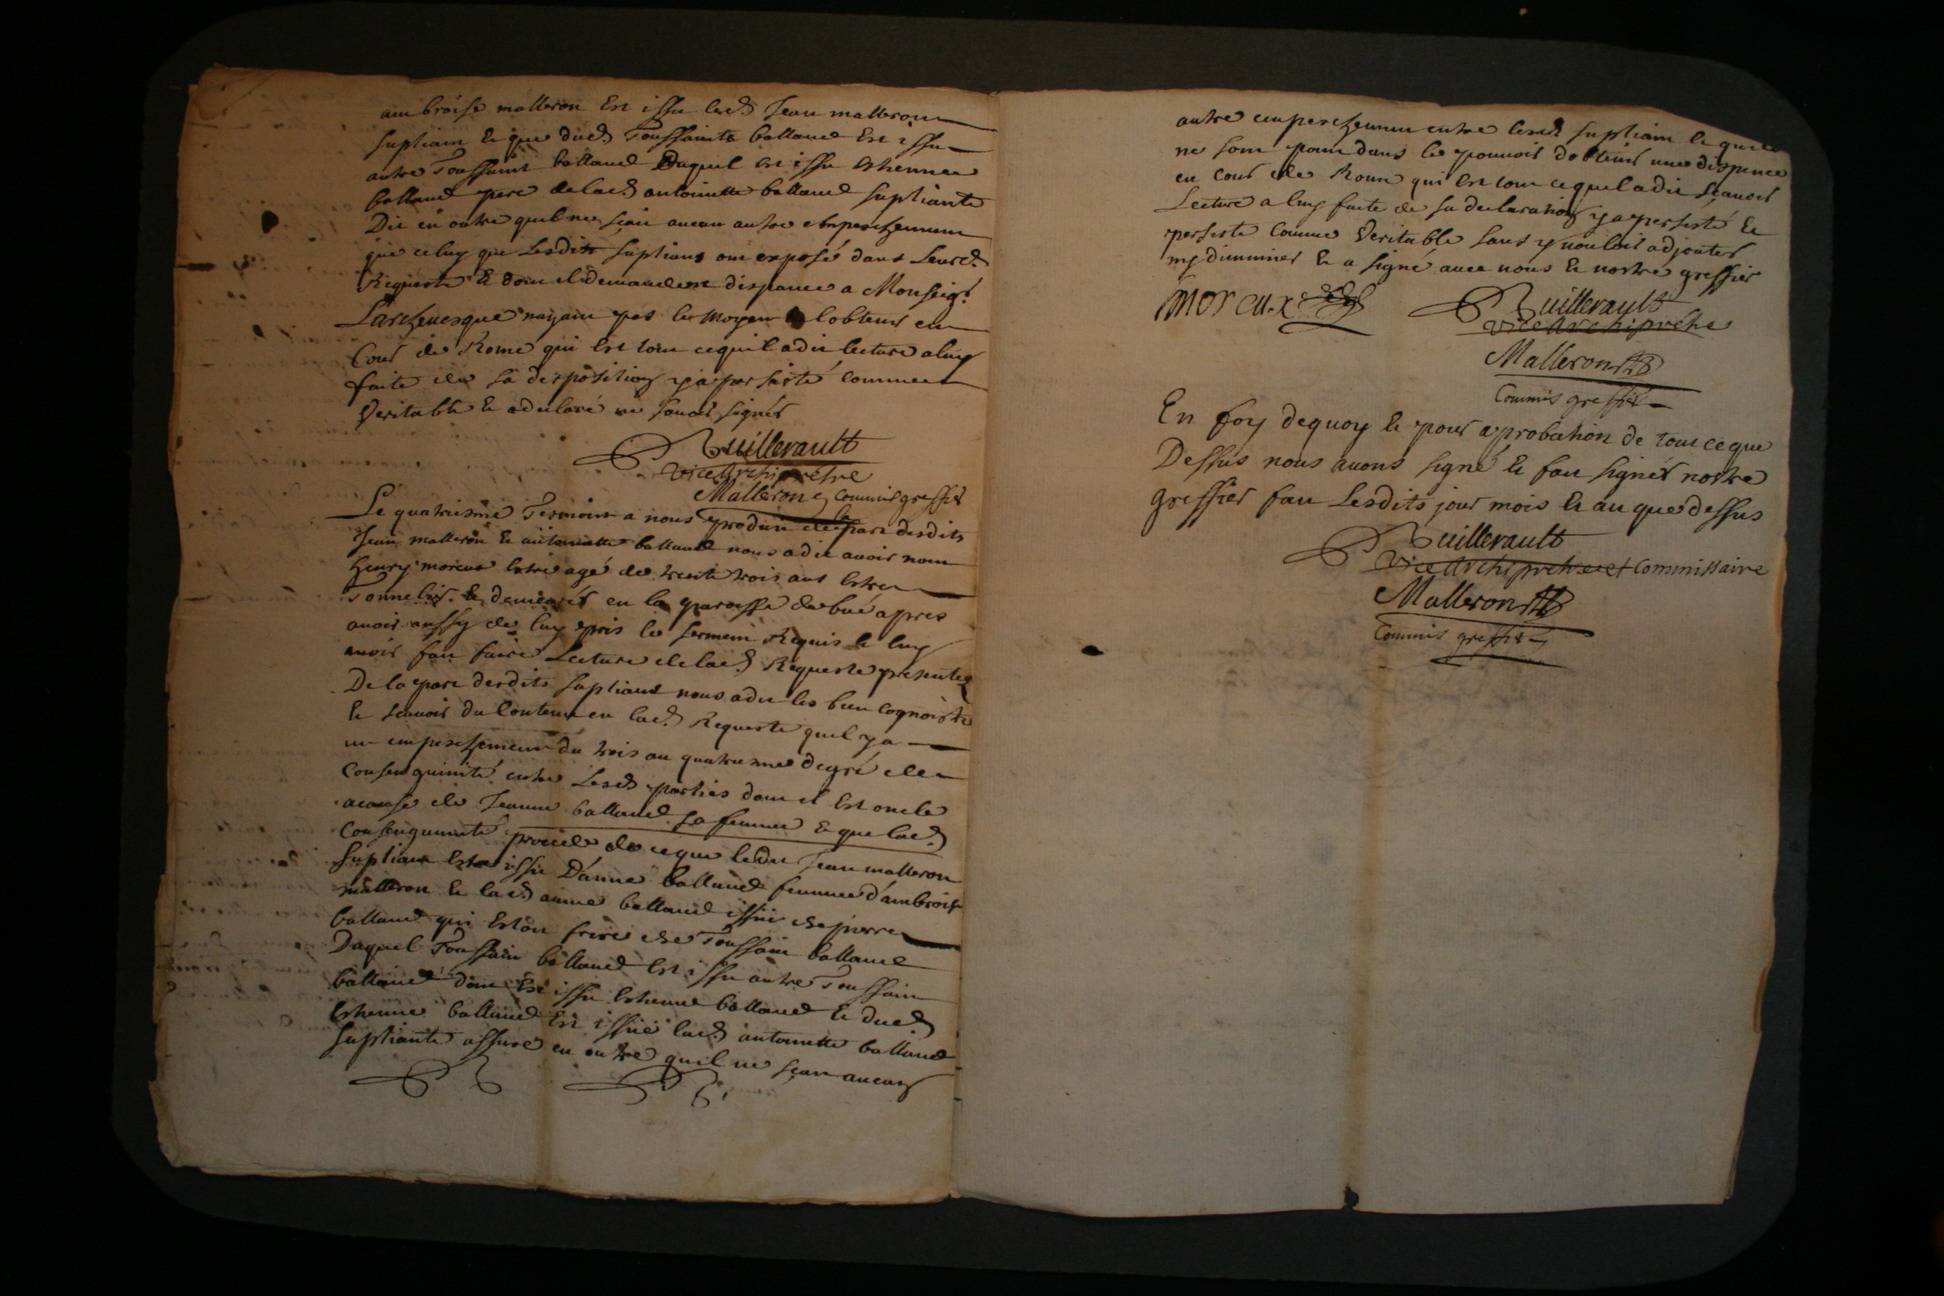 ambroise malleron Est issu led. Jean malleron
supliant Et que dud. Toussaints balland Est issu
autre Toussaint balland Duquel est issu Estienne
balland pere de lad. antoinette balland supliante
Dit en outre quil ne sçait aucun autre empeschement
que celuy que Lesdits supliant ont exposé dans Leurd.
Requeste Et dont il demandent dispance a Monseigr.
Larchevesque nayant pas les moyen de lobtenir en
Cour de Rome qui Est tout cequil a dit lecture a luy
faite de sa disposition y a persisté comme
Veritable Et a declaré ne sçavoir signer
Guillerault
vice Archiprêtre
Malleron commis greffier
Le quatriesme Temoint a nous produit de la part desdits
Jean malleron Et antoinette balland nous a dit avoir nom
henry moreux Estre agé de trente trois ans Estre
Tonnelier Et demeurer en la paroisse de bué apres
avoir aussy de luy pris le serment Requis Et luy
avoir fait faire Lecture de lad. Requeste presentée
De la part desdits supliant nous a dit les bien cognoistre
Et scavoir du Contenu en lad. Requeste quil y a
un empeschement du trois au quatriesme degré de
Consenguinité entre Lesd. parties dont il Est oncle
acause de Jeanne balland sa femme Et que lad.
Consenguinité provient de ce que ledit Jean malleron
supliant Estre issu D'anne balland femme d'ambroise
malleron Et lad. anne balland issüe de pierre
balland qui Estoit frere de Toussain balland
Duquel Toussain balland Est issu autre Toussain
balland dont Est issu Estienne balland Et dud.
Estienne balland Est issüe lad. antoinette balland
supliante assure en outre quil ne sçait aucun
autre empeschement entre lesd. supliant lequels
ne sont point dans le pouvoir dobtenir une dispence
en Cour de Rome qui Est tout cequil a dit sçavoir
Lecture a luy faite de sa declaration y a persisté Et
persiste Comme Veritable sans y vouloir adjouter
ny diminuer Et a signé avec nous Et nostre greffier
moreux
Guillerault
vice Archiprêtre
Malleron
Commis greffier
En foy dequoy Et pour aprobation de tout ceque
Dessus nous avons signé Et fait signer nostre
greffier fait Lesdits jour mois Et an que dessus
Guillerault
Vice Archiprêtre et Commissaire
Malleron
Commis greffier